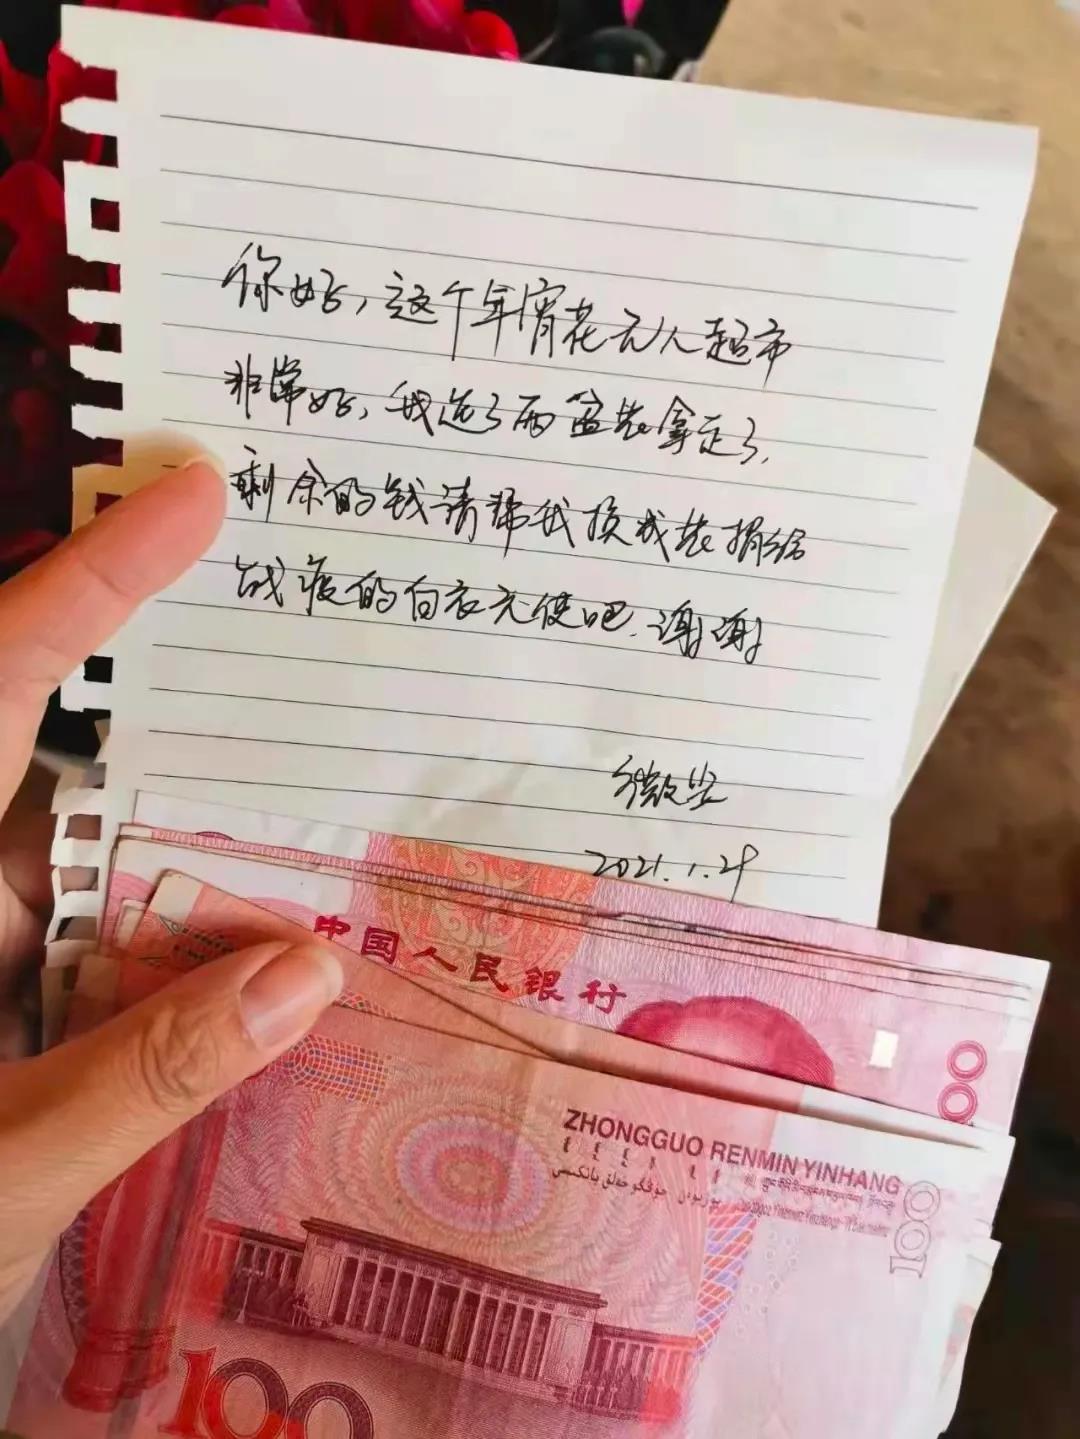 你好，这个年宵花无人超市
非常好，我选了两盆花拿走了，
剩余的钱请帮我换成花捐给
战疫的白衣天使吧，谢谢
2021.1.29
中国人民银行
ZHONGGUO RENMIN YINHANG
100
100